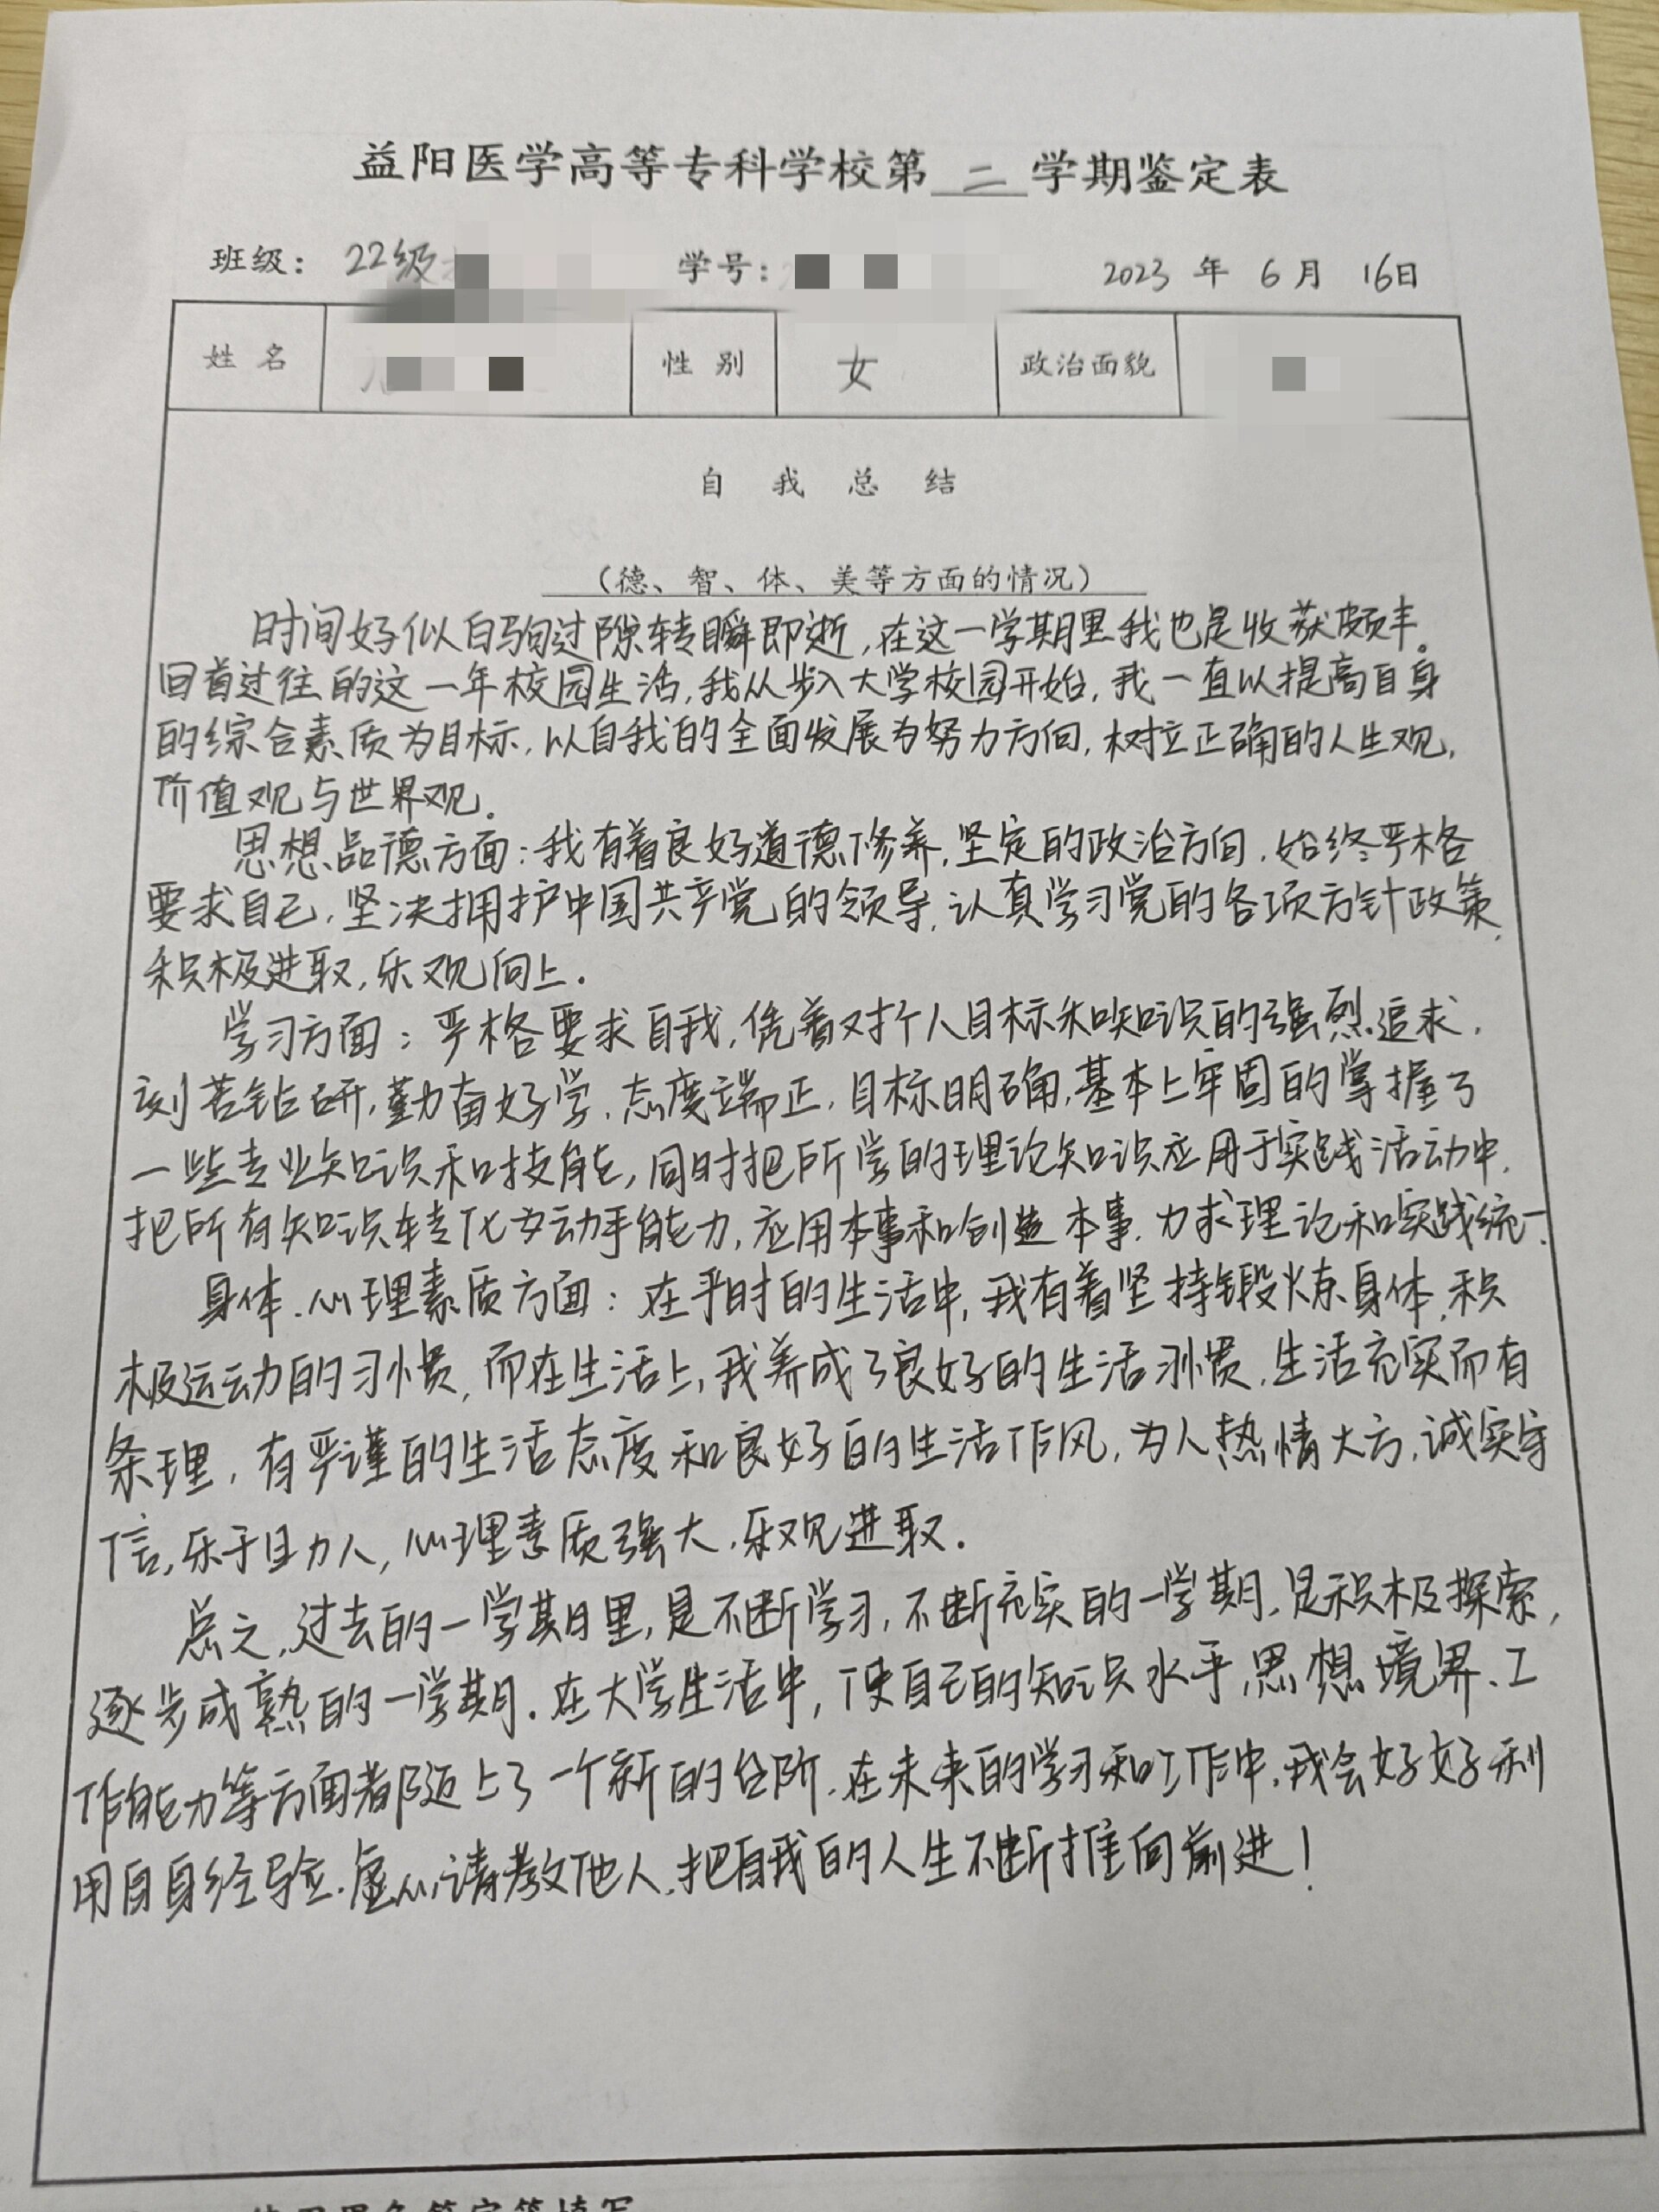 益阳医学高等专科学校第 二 学期鉴定表
班级： 22级 学号： 2023 年 6 月 16日
姓 名 性 别 女 政治面貌
自 我 总 结
（德、智、体、美等方面的情况）
时间好似白驹过隙转瞬即逝，在这一学期里我也是收获颇丰。
回首过往的这一年校园生活，我从步入大学校园开始，我一直以提高自身
的综合素质为目标，以自我的全面发展为努力方向，树立正确的人生观，
价值观与世界观。
思想品德方面：我有着良好道德修养，坚定的政治方向，始终严格
要求自己，坚决拥护中国共产党的领导，认真学习党的各项方针政策，
积极进取，乐观向上。
学习方面：严格要求自我，凭着对个人目标和知识的强烈追求，
刻苦钻研，勤奋好学，态度端正，目标明确，基本上牢固的掌握了
一些专业知识和技能，同时把所学的理论知识应用于实践活动中，
把所有知识转化为动手能力，应用本事和创造本事，力求理论和实践统一。
身体、心理素质方面：在平时的生活中，我有着坚持锻炼身体，积
极运动的习惯，而在生活上，我养成了良好的生活习惯，生活充实而有
条理，有严谨的生活态度和良好的生活作风，为人热情大方，诚实守
信，乐于助人，心理素质强大，乐观进取。
总之，过去的一学期里，是不断学习，不断充实的一学期，是积极探索，
逐步成熟的一学期。在大学生活中，使自己的知识水平，思想境界、工
作能力等方面都迈上了一个新的台阶，在未来的学习和工作中，我会好好利
用自身经验，虚心请教他人，把自我的人生不断推向前进！